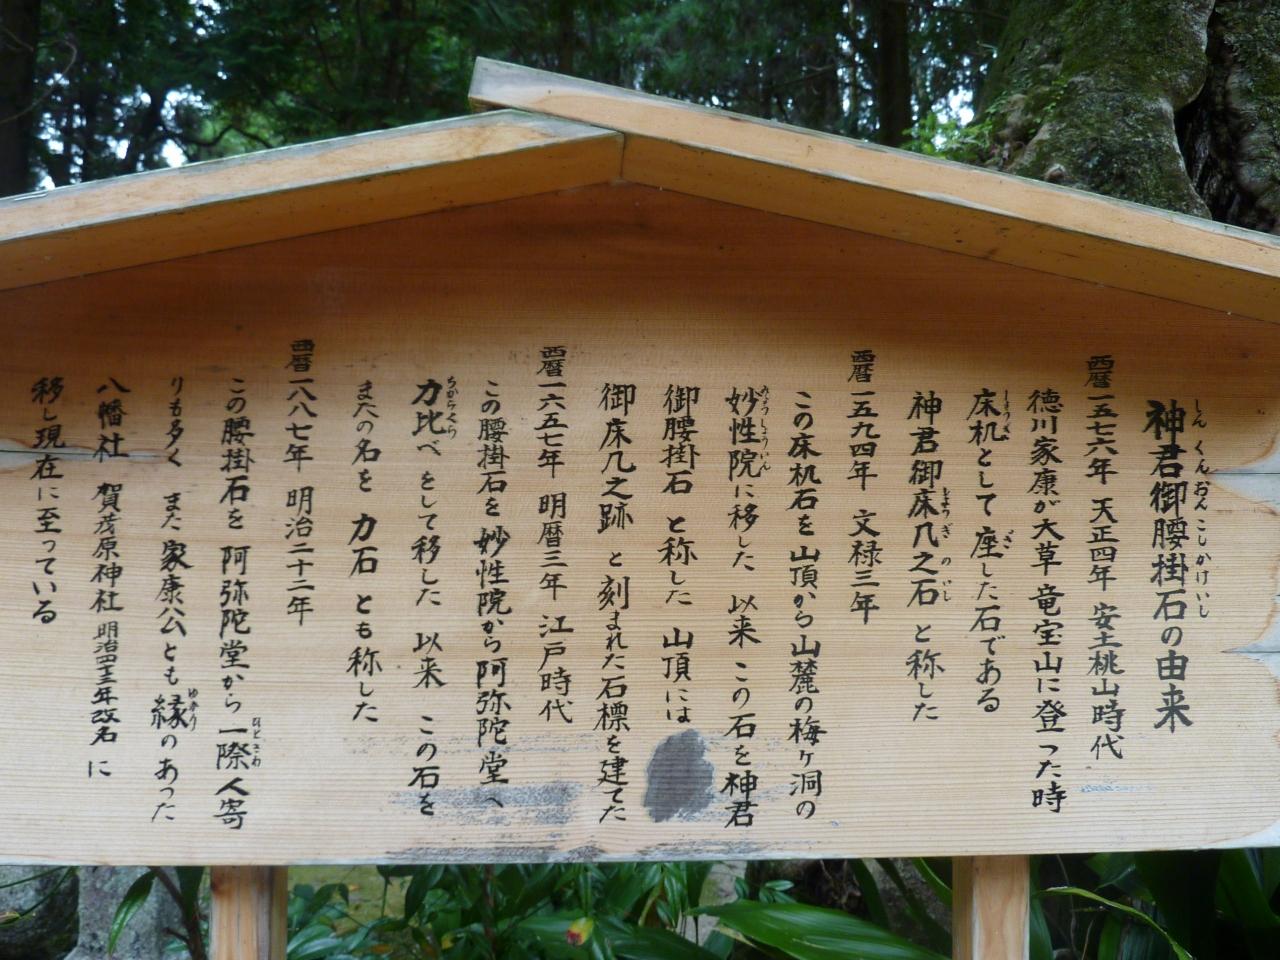 神君御腰掛石の由来
しんくんおんこしかけいし
西暦一五七六年 天正四年 安土桃山時代
徳川家康が大草 竜宝山に登った時
床机として 座した石である
しょうぎ ざ
神君御床几之石 と称した
しょうぎのいし
西暦一五九四年 文禄三年
この床机石を 山頂から 山麓の梅ヶ洞の
妙性院に移した 以来 この石を神君
みょうしょういん
御腰掛石 と称した 山頂には
御床几之跡 と刻まれた石標を建てた
西暦一六五七年 明暦三年 江戸時代
この腰掛石を 妙性院から 阿弥陀堂へ
力比べをして移した 以来 この石を
ちからくら
またの名を 力石 とも称した
西暦一八八七年 明治二十二年
この腰掛石を 阿弥陀堂から 一際人寄
ひときわ
りも多く また 家康公とも縁のあった
ゆかり
八幡社 賀茂原神社 明治四十三年改名 に
移し現在に至っている